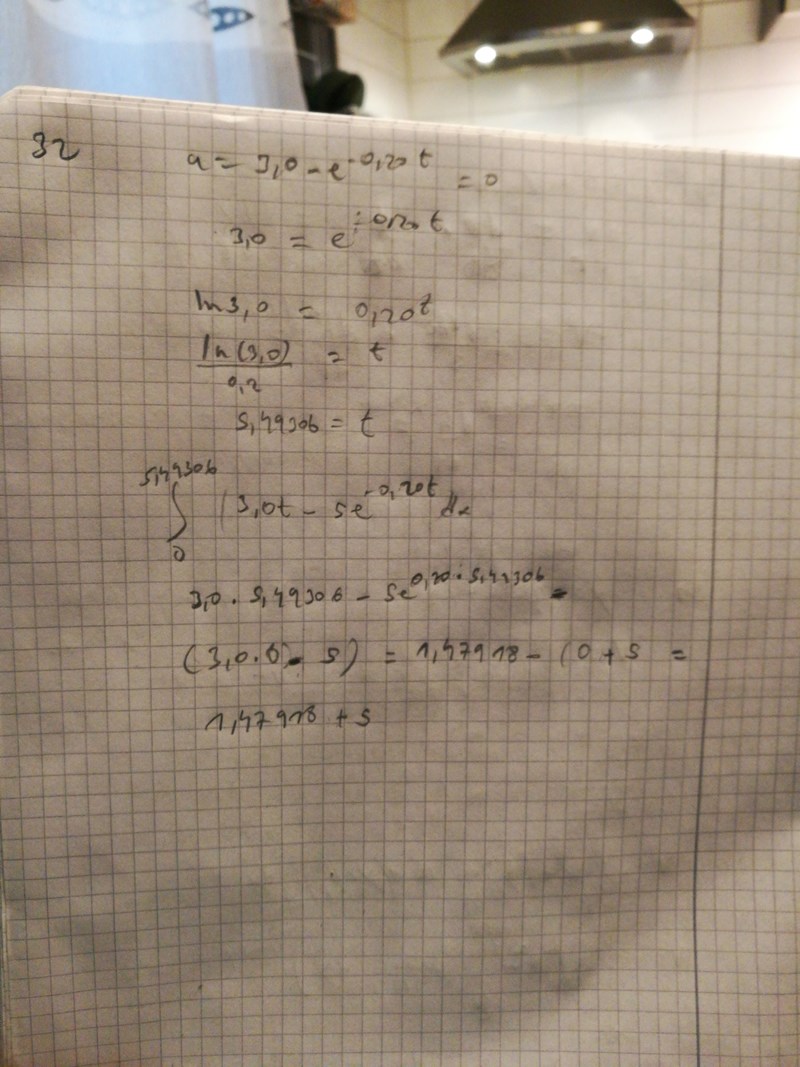 32
a = 3,0 - e^-0,20 t = 0
3,0 = e^-0,20 t
ln 3,0 = 0,20 t
ln(3,0) / 0,2 = t
5,49306 = t
5,49306
∫ (3,0t - 5e^-0,20t dx
0
3,0 · 5,49306 - 5e^0,20 · 5,49306 -
(3,0 · 0 - 5) = 1,47918 - (0 + 5 =
1,47918 + 5